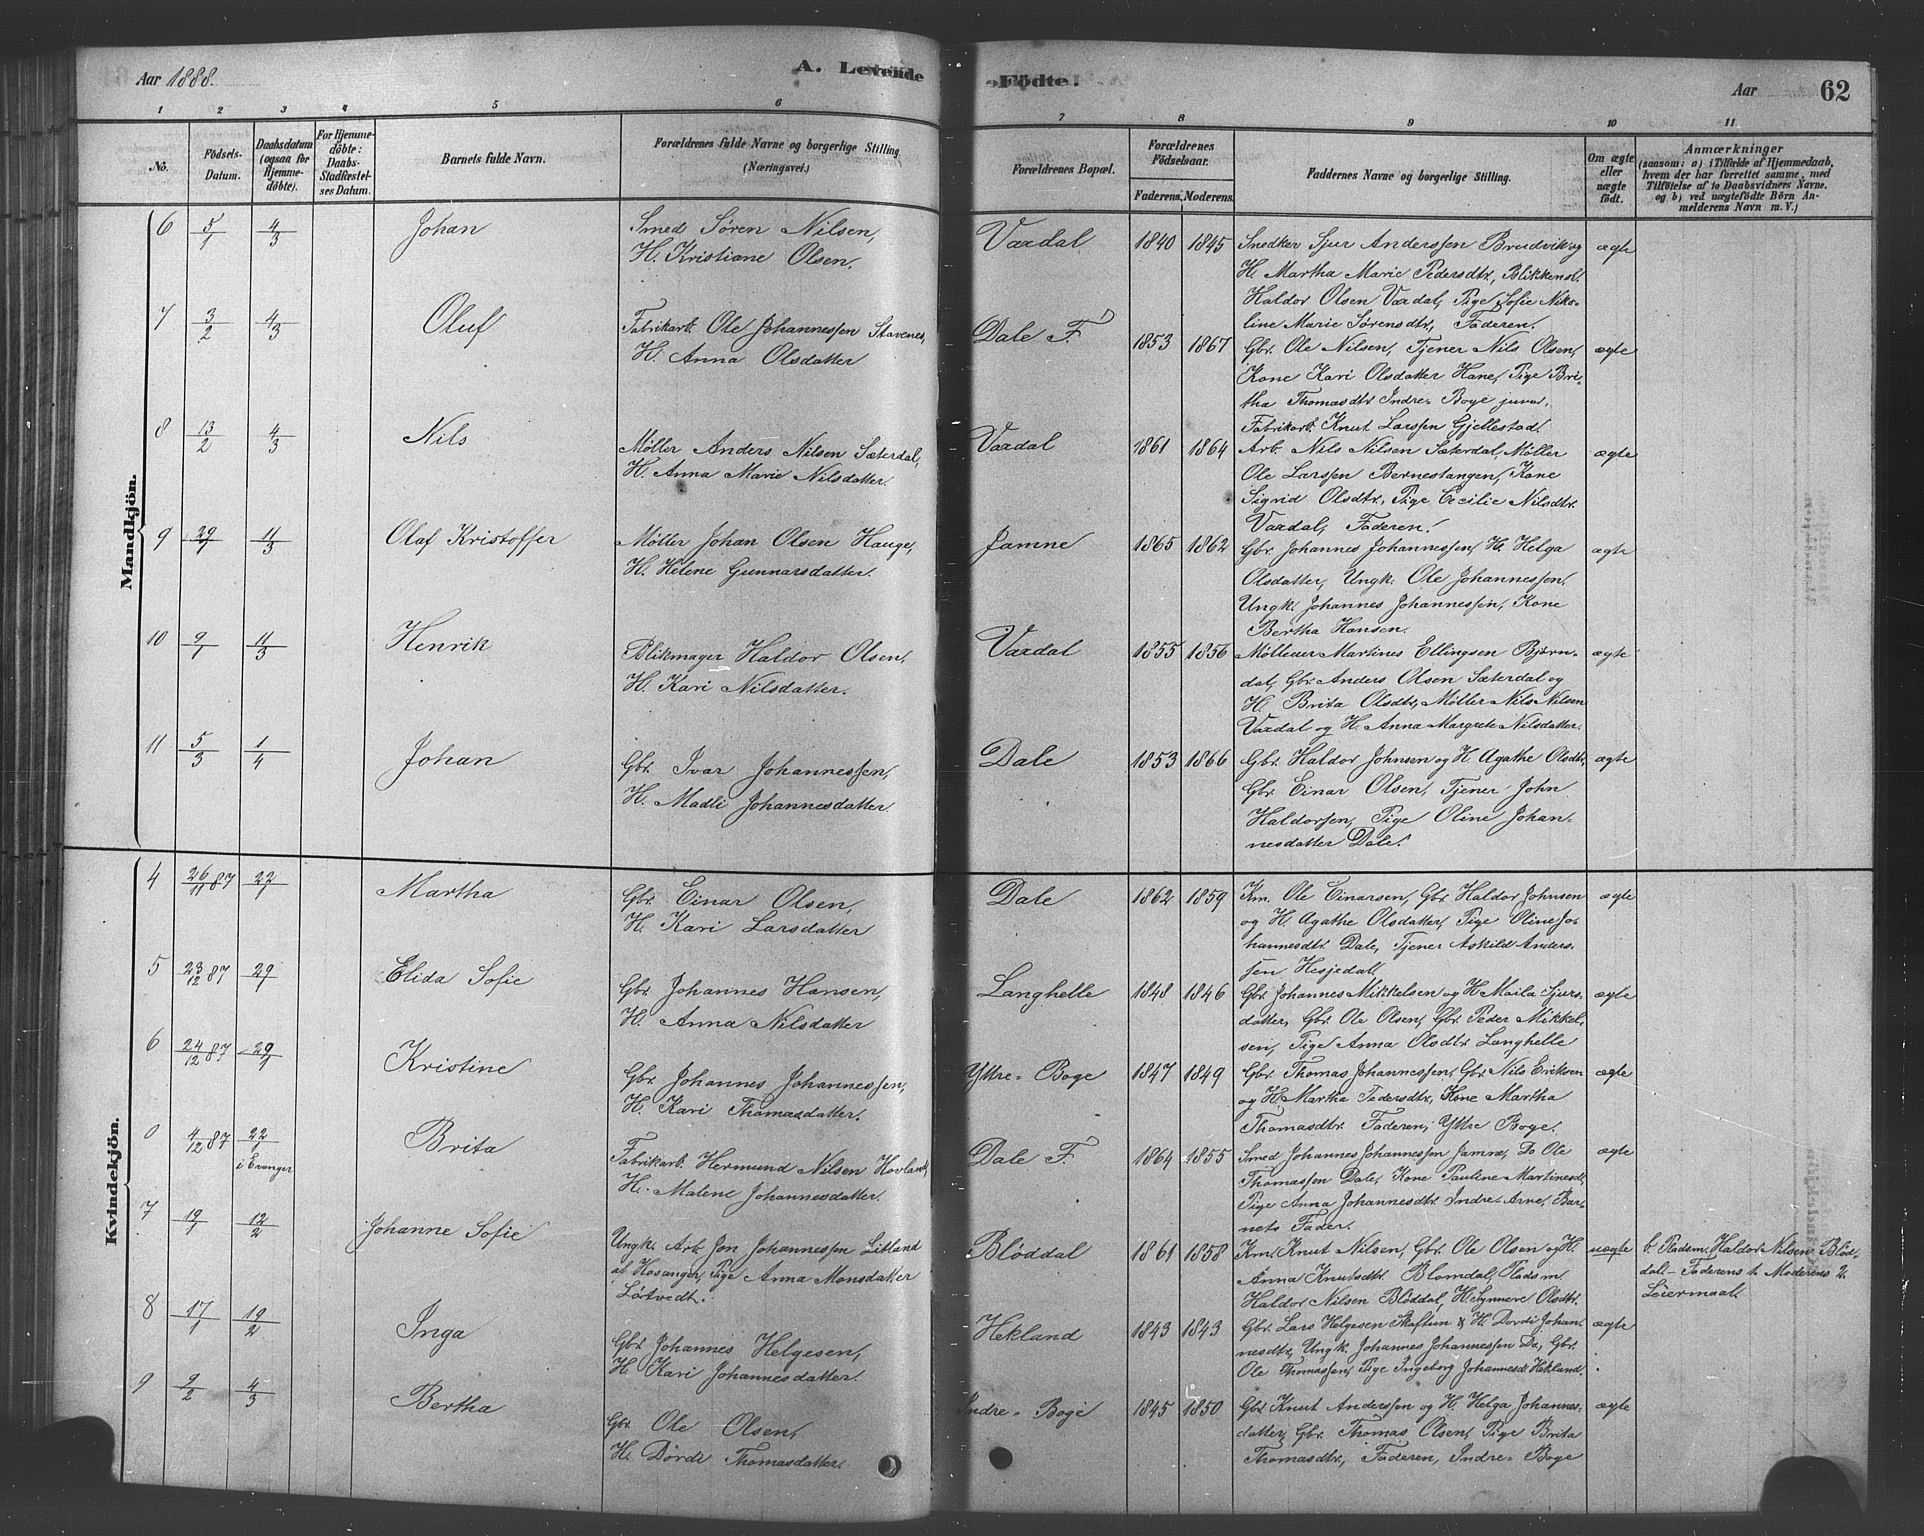 Aar 1888.
A. Levende Födte.
Aar
62
1 2 3 4 5 6 7 8 9 10 11
No.
Födsels-
Datum.
Daabsdatum
(ogsaa for
Hjemme-
döbte).
For Hjemme-
döbte:
Daabs-
Stadfæstel-
ses Datum.
Barnets fulde Navn.
Forældrenes fulde Navne og borgerlige Stilling.
(Næringsvei.)
Forældrenes Bopæl.
Forældrenes
Födselsaar.
Faderens. Moderens.
Faddernes Navne og borgerlige Stilling.
Om ægte
eller
uægte
födt.
Anmærkninger
(saasom: a) i Tilfælde af Hjemmedaab,
hvem der har forrettet samme, med
Tilföielse af to Daabsvidners Navne.
og b) ved uægtefödte Börn An-
melderens Navn m. V.)
Mandkjön.
6 5/1 4/3 Johan
Smed Søren Nilsen,
H. Kristiane Olsen.
Vaxdal 1840 1845
Snedker Sjur Anderssen Brudvik og
H. Martha Marie Pedersdtr, Blikkensl.
Haldor Olsen Vaxdal, Pige Sofie Niko-
line Marie Sørensdtr, Faderen.
ægte
7 3/2 4/3 Oluf
Fabrikarb. Ole Johannessen Stavenes,
H. Anna Olsdatter
Dale F. 1853 1867
Gbr. Ole Nilsen, Tjener Nils Olsen,
Kone Kari Olsdatter Hane, Pige Bri-
tha Thomasdtr Indre-Boge
Fabrikarb. Knut Larssen Gjellestad.
ægte
8 13/2 4/3 Nils
Møller Anders Nilsen Sæterdal,
H. Anna Marie Nilsdatter.
Vaxdal 1861 1864
Arb. Nils Nilsen Sæterdal, Møller
Ole Larssen Bernestangen, Kone
Sigrid Olsdtr, Pige Cecilie Nilsdtr
Vaxdal, Faderen.
ægte
9 29/1 11/3 Olaf Kristoffer
Møller Johan Olsen Hauge,
H. Helene Gunnarsdatter.
Jamne 1865 1862
Gbr. Johannes Johannessen, H. Helga
Olsdatter, Ungk. Ole Johannessen,
Ungk. Johannes Johannessen, Kone
Bertha Hansen.
ægte
10 9/1 11/3 Henrik
Blikmager Haldor Olsen,
H. Kari Nilsdatter.
Vaxdal 1855 1856
Mølleier Martines Ellingsen Bjørn-
dal, Gbr. Anders Olsen Sæterdal og
H. Brita Olsdtr, Møller Nils Nilsen
Vaxdal og H. Anna Margrete Nilsdatter.
ægte
11 5/3 1/4 Johan
Gbr. Ivar Johannessen,
H. Madli Johannesdatter.
Dale 1853 1866
Gbr. Haldor Johnsen og H. Agathe Olsdtr,
Gbr. Einar Olsen, Tjener John
Haldorsen, Pige Oline Johan-
nesdatter Dale.
ægte
Kvindekjön.
4 26/11 87 22/1 Martha
Gbr. Einar Olsen,
H. Kari Larsdatter
Dale 1862 1859
Km. Ole Einarsen, Gbr. Haldor Johnsen
og H. Agathe Olsdatter, Pige Oline Jo-
hannesdtr. Dale, Tjener Askild Anders-
sen Hesjedal.
ægte
5 23/12 87 29/1 Elida Sofie
Gbr. Johannes Hansen,
H. Anna Nilsdatter
Langhelle 1848 1846
Gbr. Johannes Mikkelsen og H. Maila Sjurs-
datter, Gbr. Ole Olsen, Gbr. Peder Mikkel-
sen, Pige Anna Olsdtr Langhelle
ægte
6 24/12 87 29/1 Kristine
Gbr. Johannes Johannessen,
H. Kari Thomasdatter.
Yttre-Boge 1847 1849
Gbr. Thomas Johannessen, Gbr. Nils Eriksen
og H. Martha Pedersdtr, Kone Martha
Thomasdtr. Faderen, Yttre Boge.
ægte
0 4/12 87 22/1 i Evanger Brita
Fabrikarb. Hermund Nilsen Hovland,
H. Malene Johannesdatter.
Dale F. 1864 1855
Smed Johannes Johannessen Jamne, Do Ole
Thomassen Dale, Kone Pauline Martinesdt,
Pige Anna Johannesdtr Indre-Arne, Bar-
nets Fader.
ægte
7 19/1 12/2 Johanne Sofie
Ungk. Arb. Jon Johannessen Litland
af Hosanger, Pige Anna Monsdatter
Lørtvedt.
Bløddal 1861 1858
Km. Knut Nilsen, Gbr. Ole Olsen og H.
Anna Knutsdtr. Blomdal, Pladsm.
Haldor Nilsen Bløddal, H. Synneve Olsdtr.
uægte
b. Pladsm. Haldor Nilsen Blød-
dal – Faderens 1. Moderens 2.
Leiermaal.
8 17/1 19/2 Inga
Gbr. Johannes Helgesen,
H. Kari Johannesdatter.
Hekland 1843 1843
Gbr. Lars Helgesen Skaftun & H. Dordi Johan-
nesdtr, Ungk. Johannes Johannessen Do, Gbr.
Ole Thomassen, Pige Ingeborg Johannesdt Hekland.
ægte
9 9/2 4/3 Bertha
Gbr. Ole Olsen,
H. Dördi Thomasdatter.
Indre-Boge 1845 1850
Gbr. Knut Anderssen og H. Helga Johannes-
datter, Gbr. Thomas Olsen, Pige Brita
Thomasdtr, Faderen, Indre-Boge
ægte